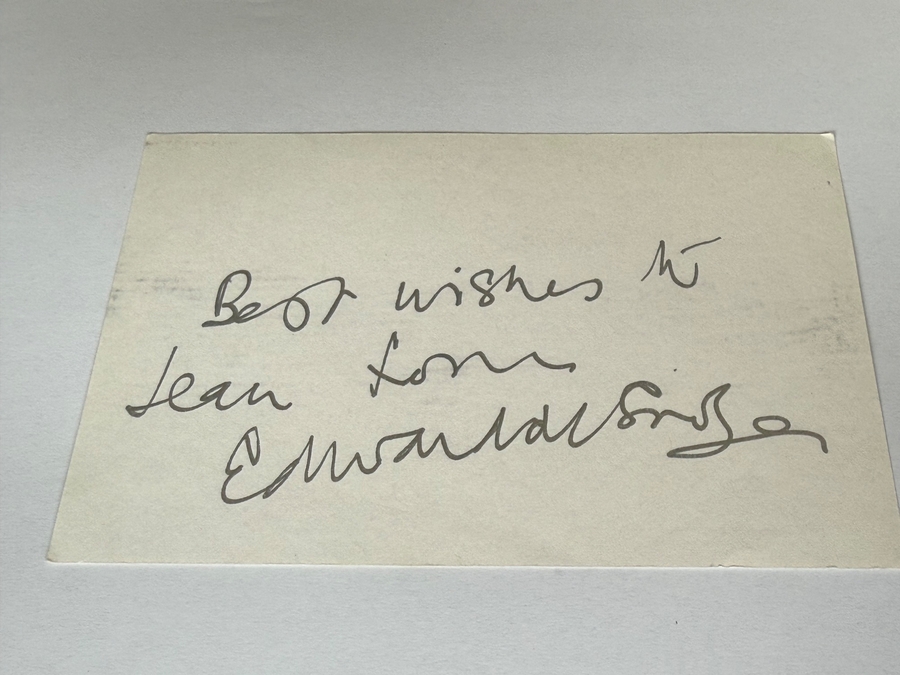 Best wishes to
Jean from
Edward